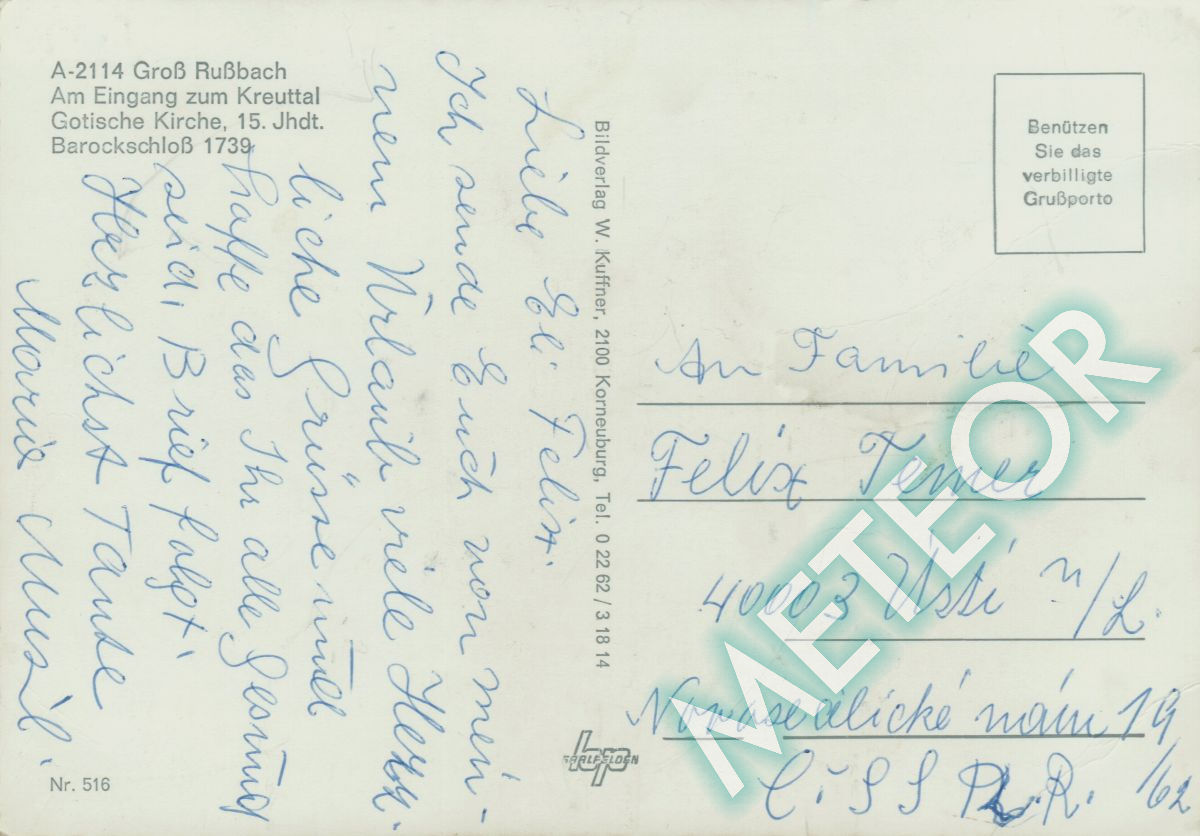 A-2114 Groß Rußbach
Am Eingang zum Kreuttal
Gotische Kirche, 15. Jhdt.
Barockschloß 1739
Liebe Eli Felix.
Ich sende Euch von mei-
nem Urlaub viele Herz-
liche Grüsse und
hoffe das Ihr alle Gesund
seid, Brief folgt.
Herzlichst Tante
Marie Musil.
Nr. 516
Bildverlag W. Kuffner, 2100 Korneuburg, Tel. 0 22 62 / 3 18 14
SAALFELDEN
Benützen
Sie das
verbilligte
Grußporto
An Familie
Felix
40003 Ústí n/L.
Novosedlické nám 19
/62
METEOR